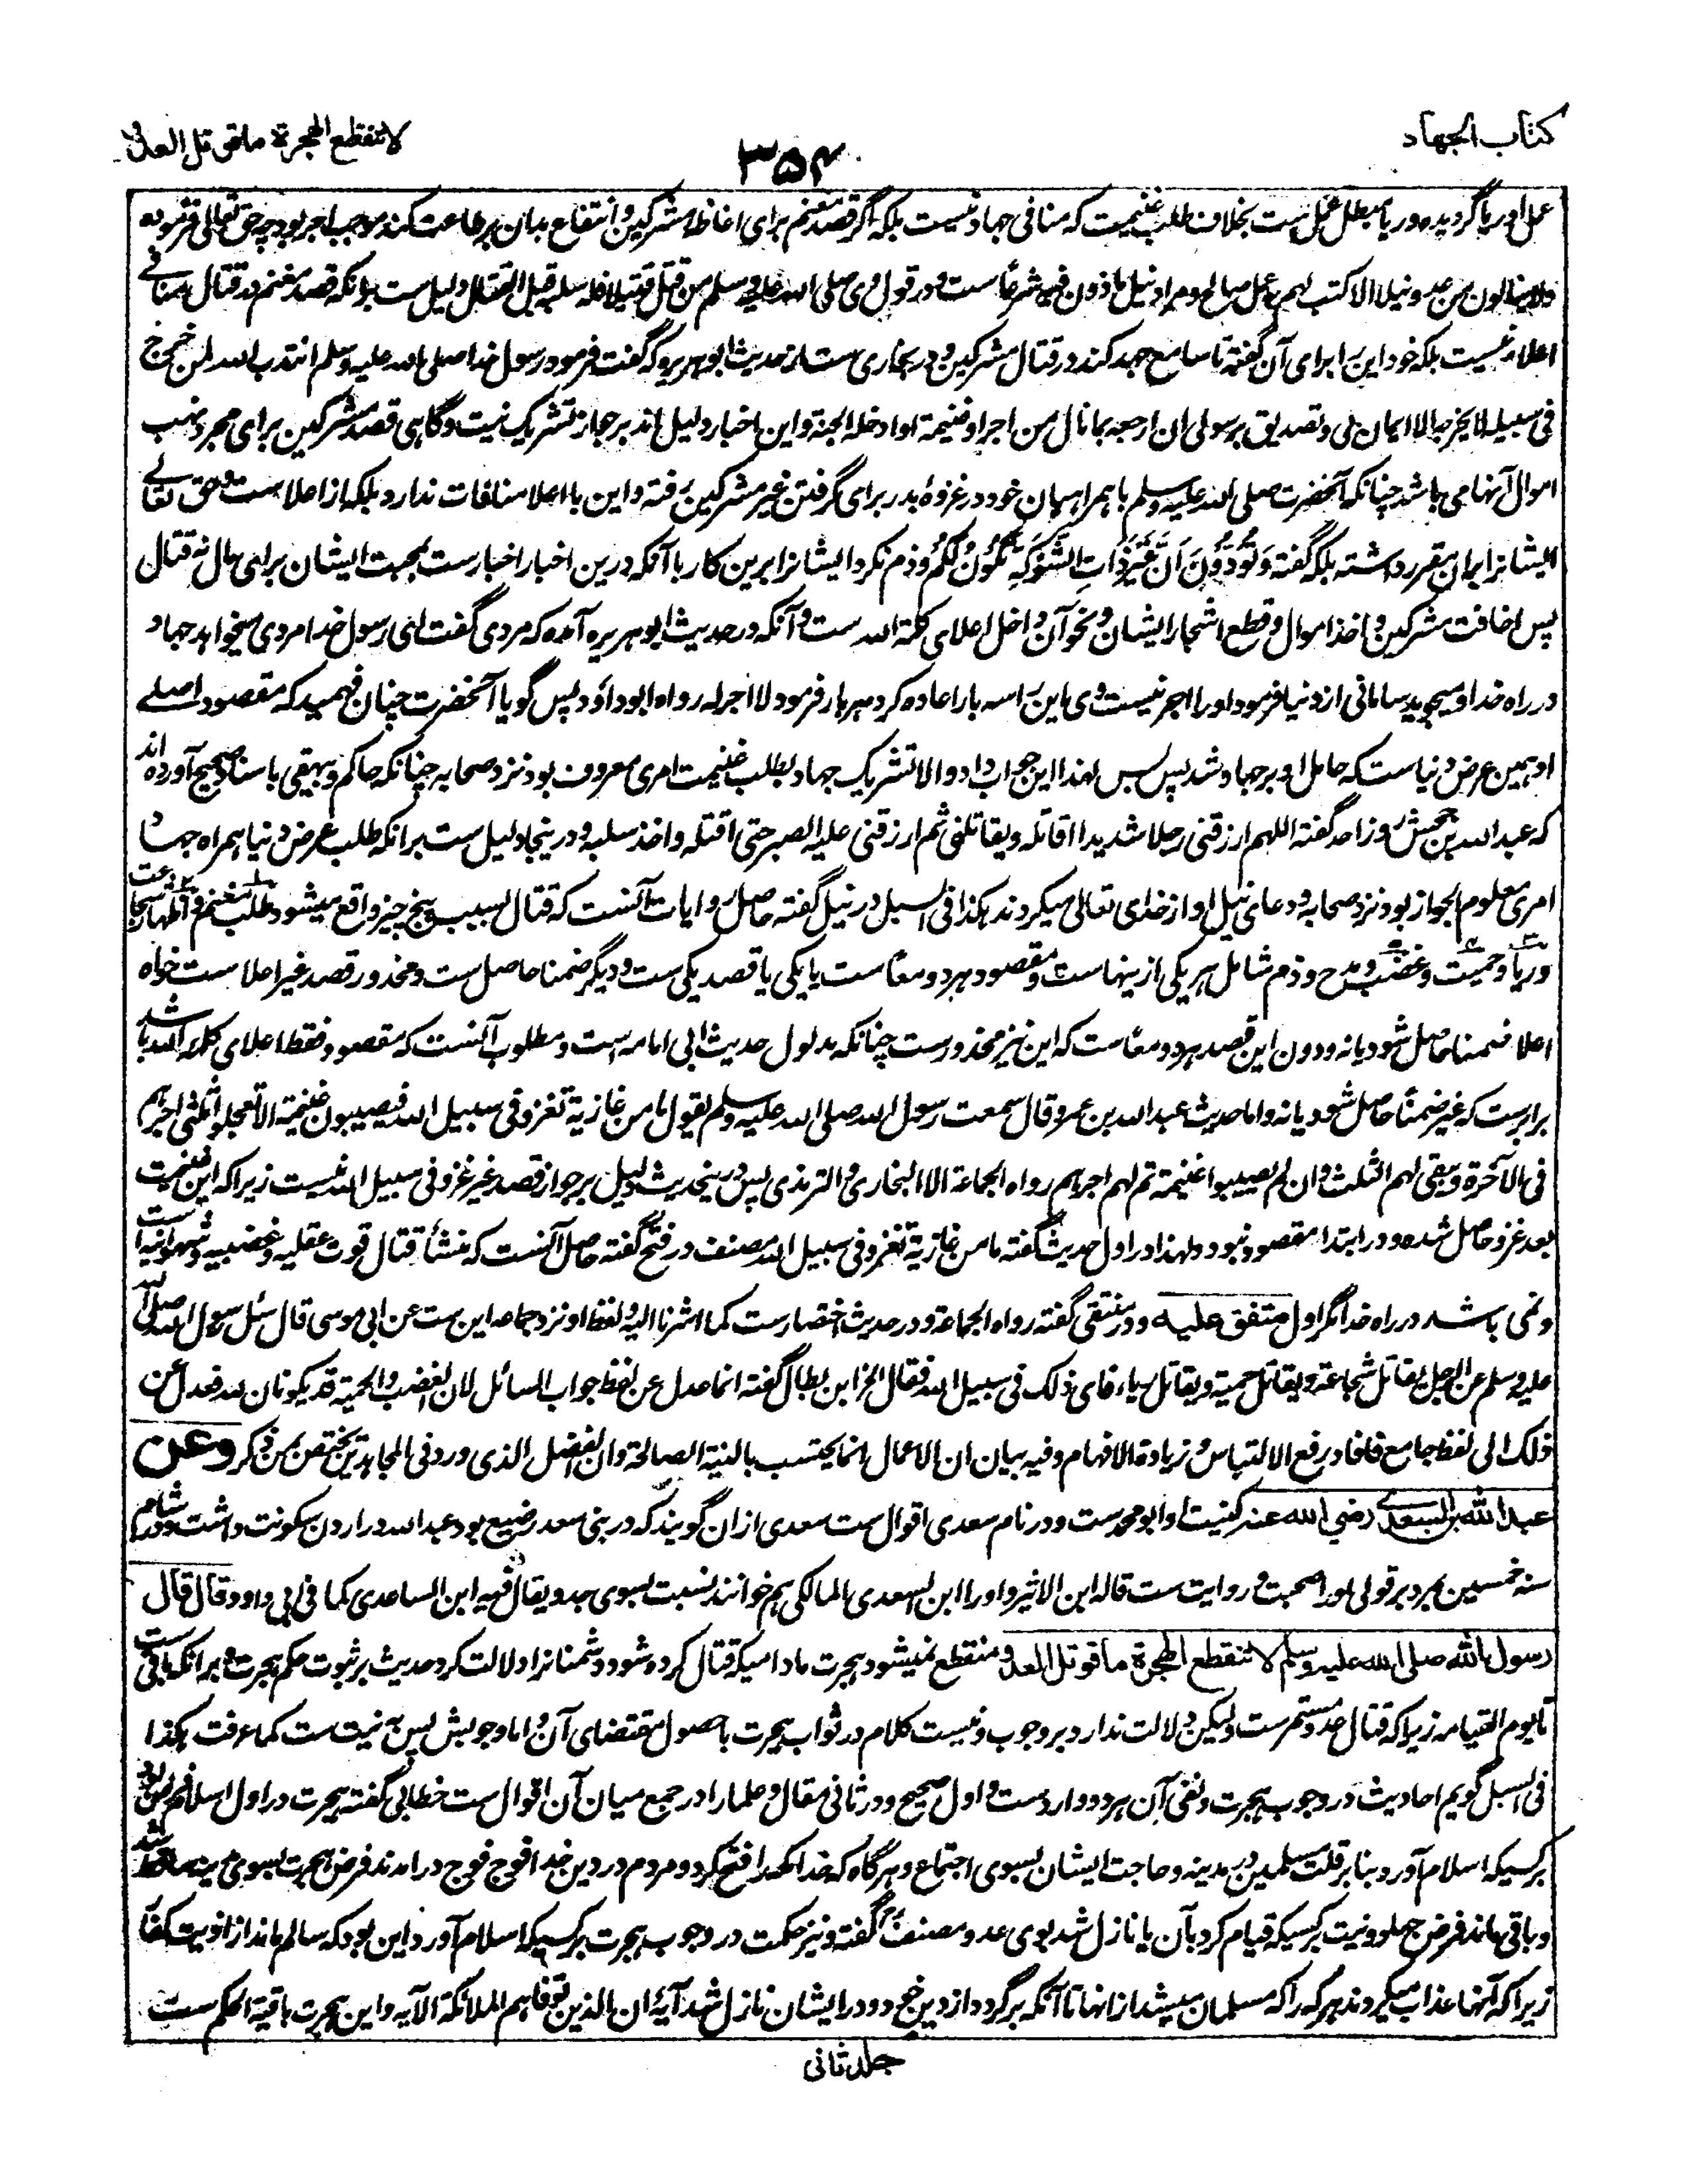 كتاب الجهاد
٣٥٤
لا تنقطع الهجرة ما قوتل العدو
عمل او ریا گردیده و ریا مبطل عمل ست بخلاف طلب غنیمت که منافی جهاد نیست بلکه اگر قصد مغنم برای اغاظهٔ مشرکین و انتفاع بدان بر طاعت کند موجب اجر بود چه حق تعالی فرموده
ولا ینالون من عدو نیلا الا کتب لهم به عمل صالح و مراد نیل ماذون فیه شرعا ست و در قول وی صلی الله علیه وسلم من قتل قتیلا فله سلبه قبل القتال دلیل ست بر آنکه قصد مغنم در قتال منافی
اعلا نیست بلکه خود این را برای آن گفته تا سامع جهد کند در قتال مشرکین و در بخاری ست از حدیث ابوهریره که گفت فرمود رسول خدا صلی الله علیه وسلم انتدب الله لمن خرج
فی سبیله لا یخرجه الا ایمان بی و تصدیق برسولی ان ارجعه بما نال من اجر او غنیمة او ادخله الجنة و این اخبار دلیل اند بر جواز تشریک نیت و گاهی قصد مشرکین برای مجرد نهب
اموال آنها می باشد چنانکه آنحضرت صلی الله علیه وسلم با همراهیان خود در غزوهٔ بدر برای گرفتن عیر مشرکین رفته و این با اعلا منافات ندارد بلکه از اعلا ست و حق تعالی
ایشانرا بران مقرر داشته بلکه گفته وَتَوَدُّونَ أَنَّ غَيْرَ ذَاتِ الشَّوْكَةِ تَكُونُ لَكُمْ و ذم نکرد ایشانرا برین کار با آنکه درین اخبار اخبار ست بمحبت ایشان برای مال نه قتال
پس اخافت مشرکین و اخذ اموال و قطع اشجار ایشان و نحو آن داخل اعلای کلمة الله ست و آنکه در حدیث ابوهریره آمده که مردی گفت ای رسول خدا مردی میخواهد جهاد
در راه خدا و میجوید سامانی از دنیا فرمود او را اجر نیست وی این را سه بار اعاده کرد هر بار فرمود لا اجر له رواه ابو داؤد پس گویا آنحضرت چنان فهمید که مقصود اصلی
او همین عرض دنیا ست که حامل او بر جهاد شد پس لهذا این جواب داد و الا تشریک جهاد بطلب غنیمت امری معروف بود نزد صحابه چنانکه حاکم و بیهقی باسناد صحیح آورده اند
که عبد الله بن جحش روز احد گفته اللهم ارزقنی رجلا شدیدا اقاتله و یقاتلنی ثم ارزقنی علیه الصبر حتی اقتله و اخذ سلبه و درینجا دلیل ست بر آنکه طلب عرض دنیا همراه جهاد
امری معلوم الجواز بود نزد صحابه و دعای نیل او از خدای تعالی میکردند هکذا فی السبل در نیل گفته حاصل روایات آنست که قتال بسبب پنج چیز واقع میشود طلب مغنم و اظهار شجاعت
و ریا و حمیت و غضب و مدح و ذم شامل هر یکی ازینها ست و مقصود هر دو معا ست یا یکی یا قصد یکی ست و دیگر ضمنا حاصل ست و محذور قصد غیر اعلا ست خواه
اعلا ضمنا حاصل شود یا نه و دون این قصد هر دو معا ست که این نیز محذور ست چنانکه مدلول حدیث ابی امامه است و مطلوب آنست که مقصود فقط اعلای کلمة الله باشد
برابرست که غیر ضمنا حاصل شود یا نه و اما حدیث عبد الله بن عمرو قال سمعت رسول الله صلی الله علیه وسلم یقول ما من غازیة تغزو فی سبیل الله فیصیبون غنیمة الا تعجلوا ثلثی اجرهم
فی الآخرة و یبقی لهم الثلث و ان لم یصیبوا غنیمة تم لهم اجرهم رواه الجماعة الا البخاری و الترمذی پس درینحدیث دلیل بر جواز قصد غیر غزو فی سبیل الله نیست زیرا که این غنیمت
بعد غزو حاصل شده و در ابتدا مقصود نبود و لهذا در اول حدیث گفته ما من غازیة تغزو فی سبیل الله مصنف در فتح گفته حاصل آنست که منشأ قتال قوت عقلیه و غضبیه و شهوانیه است
و نمی باشد در راه خدا مگر اول متفق علیه و در منتقی گفته رواه الجماعة و در حدیث اختصار ست کما اشرنا الیه و لفظ او نزد جماعه این ست عن ابی موسی قال سئل رسول الله صلی الله
علیه وسلم عن الرجل یقاتل شجاعة و یقاتل حمیة و یقاتل ریاء فای ذلک فی سبیل الله فقال الخ ابن بطال گفته انما عدل عن لفظ جواب السائل لان الغضب و الحمیة قد یکونان لله فعدل عن
ذلک الی لفظ جامع فافاد رفع الالتباس و زیادة الافهام و فیه بیان ان الاعمال انما یحتسب بالنیة الصالحة و ان الفضل الذی ورد فی المجاهدین یختص بمن ذکر وعن
عبد الله بن السعدی رضی الله عنه کنیت او ابو محمد ست و در نام سعدی اقوال ست سعدی ازان گویند که در بنی سعد رضیع بود عبد الله در اردن سکونت داشت و در شام
سنه خمسین بمرد بر قولی او را صحبت و روایت ست قاله ابن الاثیر و او را ابن السعدی المالکی هم خوانند نسبت بسوی جد و یقال فیه ابن الساعدی کما فی ابی داود قال قال
رسول الله صلی الله علیه وسلم لا تنقطع الهجرة ما قوتل العدو منقطع نمیشود هجرت مادامیکه قتال کرده شود دشمنانرا دلالت کرد حدیث بر ثبوت حکم هجرت و بر آنکه باقی ست
تا یوم القیامه زیرا که قتال عدو مستمر ست و لیکن دلالت ندارد بر وجوب و نیست کلام در ثواب هجرت با حصول مقتضای آن و اما وجوبش پس به نیت ست کما عرفت هکذا
فی السبل گویم احادیث در وجوب هجرت و نفی آن هر دو وارد ست و اول صحیح و در ثانی مقال و علما را در جمع میان آن اقوال ست خطابی گفته هجرت در اول اسلام فرض بود
بر کسیکه اسلام آورد بنا بر قلت مسلمین در مدینه و حاجت ایشان بسوی اجتماع و هرگاه که خدا مکه را فتح کرد و مردم در دین خدا فوج فوج درآمدند فرض هجرت بسوی مدینه ساقط شد
و باقی ماند فرض جهاد و نیت بر کسیکه قیام کرد بآن یا نازل شد بوی عدو مصنف گفته و نیز حکمت در وجوب هجرت بر کسیکه اسلام آورد این بود که سالم ماند از اذیت کفار
زیرا که آنها عذاب میکردند هر که را که مسلمان میشد از آنها تا آنکه برگردد از دین خود و در ایشان نازل شد آیهٔ ان الذین توفاهم الملائکة الآیه و این هجرت باقیة الحکم ست
جلد ثانی